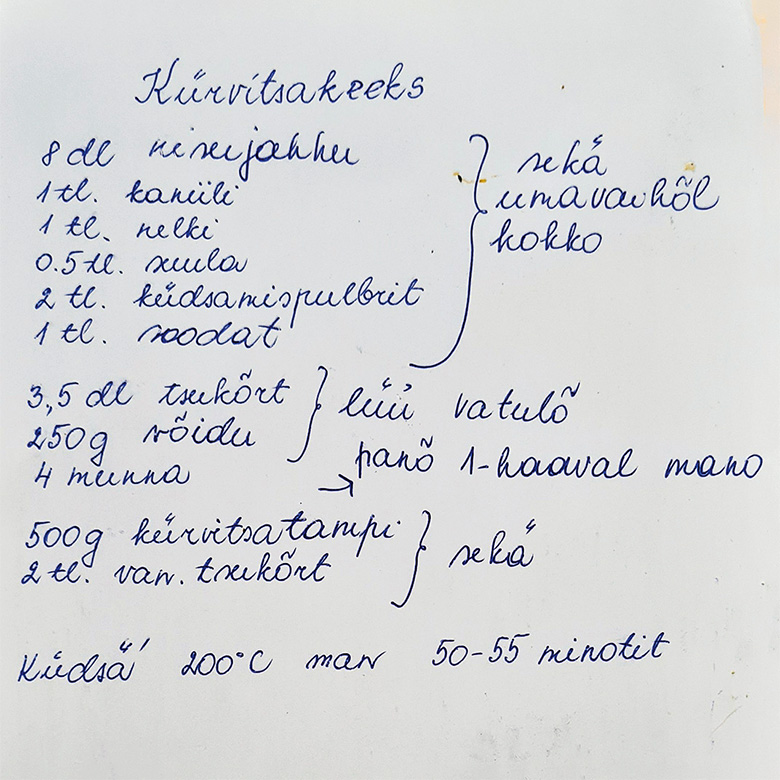 Kürvitsakeeks
8 dl nisujahhu
1 tl. kaniili
1 tl. nelki
0.5 tl. suula
2 tl. küdsämispulbrit
1 tl. soodat
sekä
umavaihõl
kokko
3,5 dl tsukõrt
250g võidu
4 munna
lüü vatulõ
panõ 1-haaval mano
500g kürvitsatampi
2 tl. van. tsukõrt
sekä
Küdsä' 200°C man 50-55 minotit